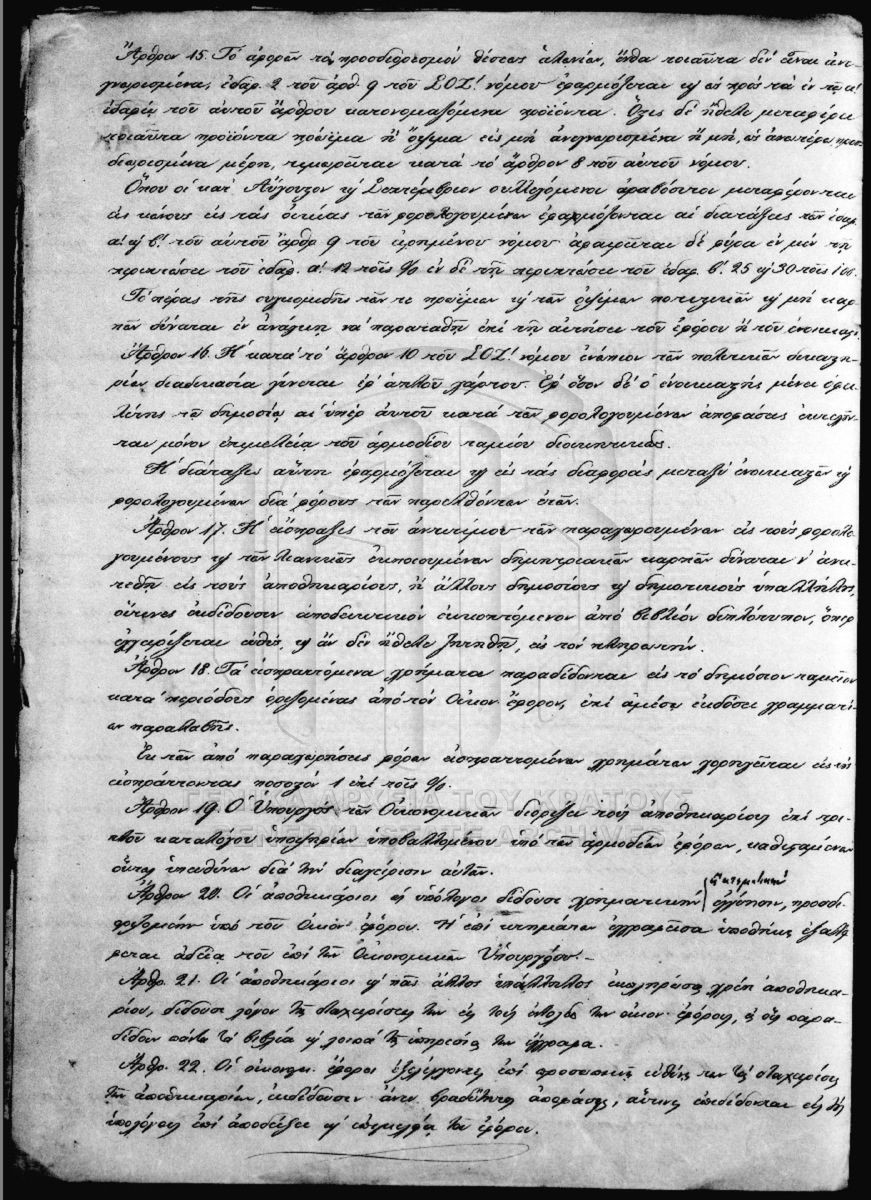 Ἄρθρον 15. Τὸ ἀφορῶν τὸν προσδιορισμὸν θέσεως ἁλωνίων, ἔνθα τοιαῦτα δὲν εἶναι ἀνε-
γνωρισμένα, ἐδάφ. 2 τοῦ ἀρθ. 9 τοῦ ΣΟΖ! νόμου ἐφαρμόζεται καὶ ὡς πρὸς τὰ ἐν τῷ α!
ἐδαφίῳ τοῦ αὐτοῦ ἄρθρου κατονομαζόμενα προϊόντα. Ὅστις δὲ ἤθελε μεταφέρει
τοιαῦτα προϊόντα πρώϊμα ἢ ὄψιμα εἰς μὴ ἀνεγνωρισμένα ἢ μὴ, ὡς ἀνωτέρω, προσ-
διωρισμένα μέρη, τιμωρεῖται κατὰ τὸ ἄρθρον 8 τοῦ αὐτοῦ νόμου.
Ὅπου οἱ κατ' Αὔγουστον καὶ Σεπτέμβριον συλλεγόμενοι ἀραβόσιτοι μεταφέρονται
εἰς κώνους εἰς τὰς οἰκίας τῶν φορολογουμένων ἐφαρμόζονται αἱ διατάξεις τῶν ἐδαφ.
α! καὶ β! τοῦ αὐτοῦ ἄρθρ. 9 τοῦ εἰρημένου νόμου ἀφαιρεῖται δὲ φύρα ἐν μὲν τῇ
περιπτώσει τοῦ ἐδαφ. α! 12 τοῖς % ἐν δὲ τῇ περιπτώσει τοῦ ἐδαφ. β! 25 καὶ 30 τοῖς 100.
Τὸ πέρας τῆς συγκομιδῆς τῶν τε πρωΐμων καὶ τῶν ὀψίμων ποτιστικῶν καὶ μὴ καρ-
πῶν δύναται ἐν ἀνάγκῃ νὰ παραταθῇ ἐπὶ τῇ αἰτήσει τοῦ ἐφόρου ἢ τοῦ ἐνοικιαστ.
Ἄρθρον 16. Ἡ κατὰ τὸ ἄρθρον 10 τοῦ ΣΟΖ! νόμου ἐνώπιον τῶν πολιτικῶν δικαστη-
ρίων διαδικασία γίνεται ἐφ' ἁπλοῦ χάρτου. Ἐφ' ὅσον δὲ ὁ ἐνοικιαστὴς μένει ὀφει-
λέτης τῷ δημοσίῳ αἱ ὑπὲρ αὐτοῦ κατὰ τῶν φορολογουμένων ἀποφάσεις ἐκτελοῦν-
ται μόνον ἐπιμελείᾳ τοῦ ἁρμοδίου ταμίου διοικητικῶς.
Ἡ διάταξις αὕτη ἐφαρμόζεται καὶ εἰς τὰς διαφορὰς μεταξὺ ἐνοικιαστῶν καὶ
φορολογουμένων διὰ φόρους τῶν παρελθόντων ἐτῶν.
Ἄρθρον 17. Ἡ εἴσπραξις τοῦ ἀντιτίμου τῶν παραχωρουμένων εἰς τοὺς φορολο-
γουμένους καὶ τῶν λιανικῶς ἐκποιουμένων δημητριακῶν καρπῶν δύναται ν' ἀνα-
τεθῇ εἰς τοὺς ἀποθηκαρίους, ἢ ἄλλους δημοσίους καὶ δημοτικοὺς ὑπαλλήλους,
οἵτινες ἐκδίδουσιν ἀποδεικτικὸν ἐκκοπτόμενον ἀπὸ βιβλίον διπλότυπον, ὅπερ
ἐγχειρίζεται εὐθὺς, καὶ ἂν δὲν ἤθελε ζητηθῇ, εἰς τὸν πληρωτήν.
Ἄρθρον 18. Τὰ εἰσπραττόμενα χρήματα παραδίδονται εἰς τὸ δημόσιον ταμεῖον
κατὰ περιόδους ὁριζομένας ἀπὸ τὸν Οἰκον. ἔφορον, ἐπὶ ἀμέσῳ ἐκδόσει γραμματί-
ων παραλαβῆς.
Ἐκ τῶν ἀπὸ παραχωρήσεις φόρων εἰσπραττομένων χρημάτων χορηγεῖται εἰς τοὺς
εἰσπράττοντας ποσοστὸν 1 ἐπὶ τοῖς %.
ΓΕΝΙΚΑ ΑΡΧΕΙΑ ΤΟΥ ΚΡΑΤΟΥΣ
GENERAL STATE ARCHIVES
Ἄρθρον 19. Ὁ Ὑπουργὸς τῶν Οἰκονομικῶν διορίζει τοὺς ἀποθηκαρίους ἐπὶ τρι-
πλοῦ καταλόγου ὑποψηφίων ὑποβαλλομένου ὑπὸ τῶν ἁρμοδίων ἐφόρων, καθισταμένων
οὕτως ὑπευθύνων διὰ τὴν διαχείρισιν αὐτῶν.
ἢ κτηματικὴν
Ἄρθρον 20. Οἱ ἀποθηκάριοι ὡς ὑπόλογοι δίδουσι χρηματικὴν ἐγγύησιν, προσδι-
οριζομένην ὑπὸ τοῦ Οἰκον. ἐφόρου. Ἡ ἐπὶ κτημάτων ἐγγραφεῖσα ὑποθήκη ἐξαλεί-
φεται ἀδείᾳ τοῦ ἐπὶ τῶν Οἰκονομικῶν Ὑπουργείου. –
Ἄρθρ. 21. Οἱ ἀποθηκάριοι καὶ πᾶς ἄλλος ὑπάλληλος ἐκπληρώσας χρέη ἀποθηκα-
ρίου, δίδουσι λόγον τῆς διαχειρίσεώς των εἰς τοὺς ἐντολεῖς των οἰκον. ἐφόρους, εἰς οὓς παρα-
δίδουν πάντα τὰ βιβλία καὶ λοιπὰ τῆς ὑπηρεσίας των ἔγγραφα.
Ἄρθρ. 22. Οἱ οἰκονομ. ἔφοροι ἐξελέγχοντες ἐπὶ προσωπικῇ εὐθύνῃ των τὰς διαχειρίσεις
τῶν ἀποθηκαρίων, ἐκδίδουσιν ἄνευ βραδύτητος ἀποφάσεις, αἵτινες ἐπιδίδονται εἰς τοὺς
ὑπολόγους ἐπὶ ἀποδείξει καὶ ἐπιμελείᾳ τοῦ ἐφόρου.